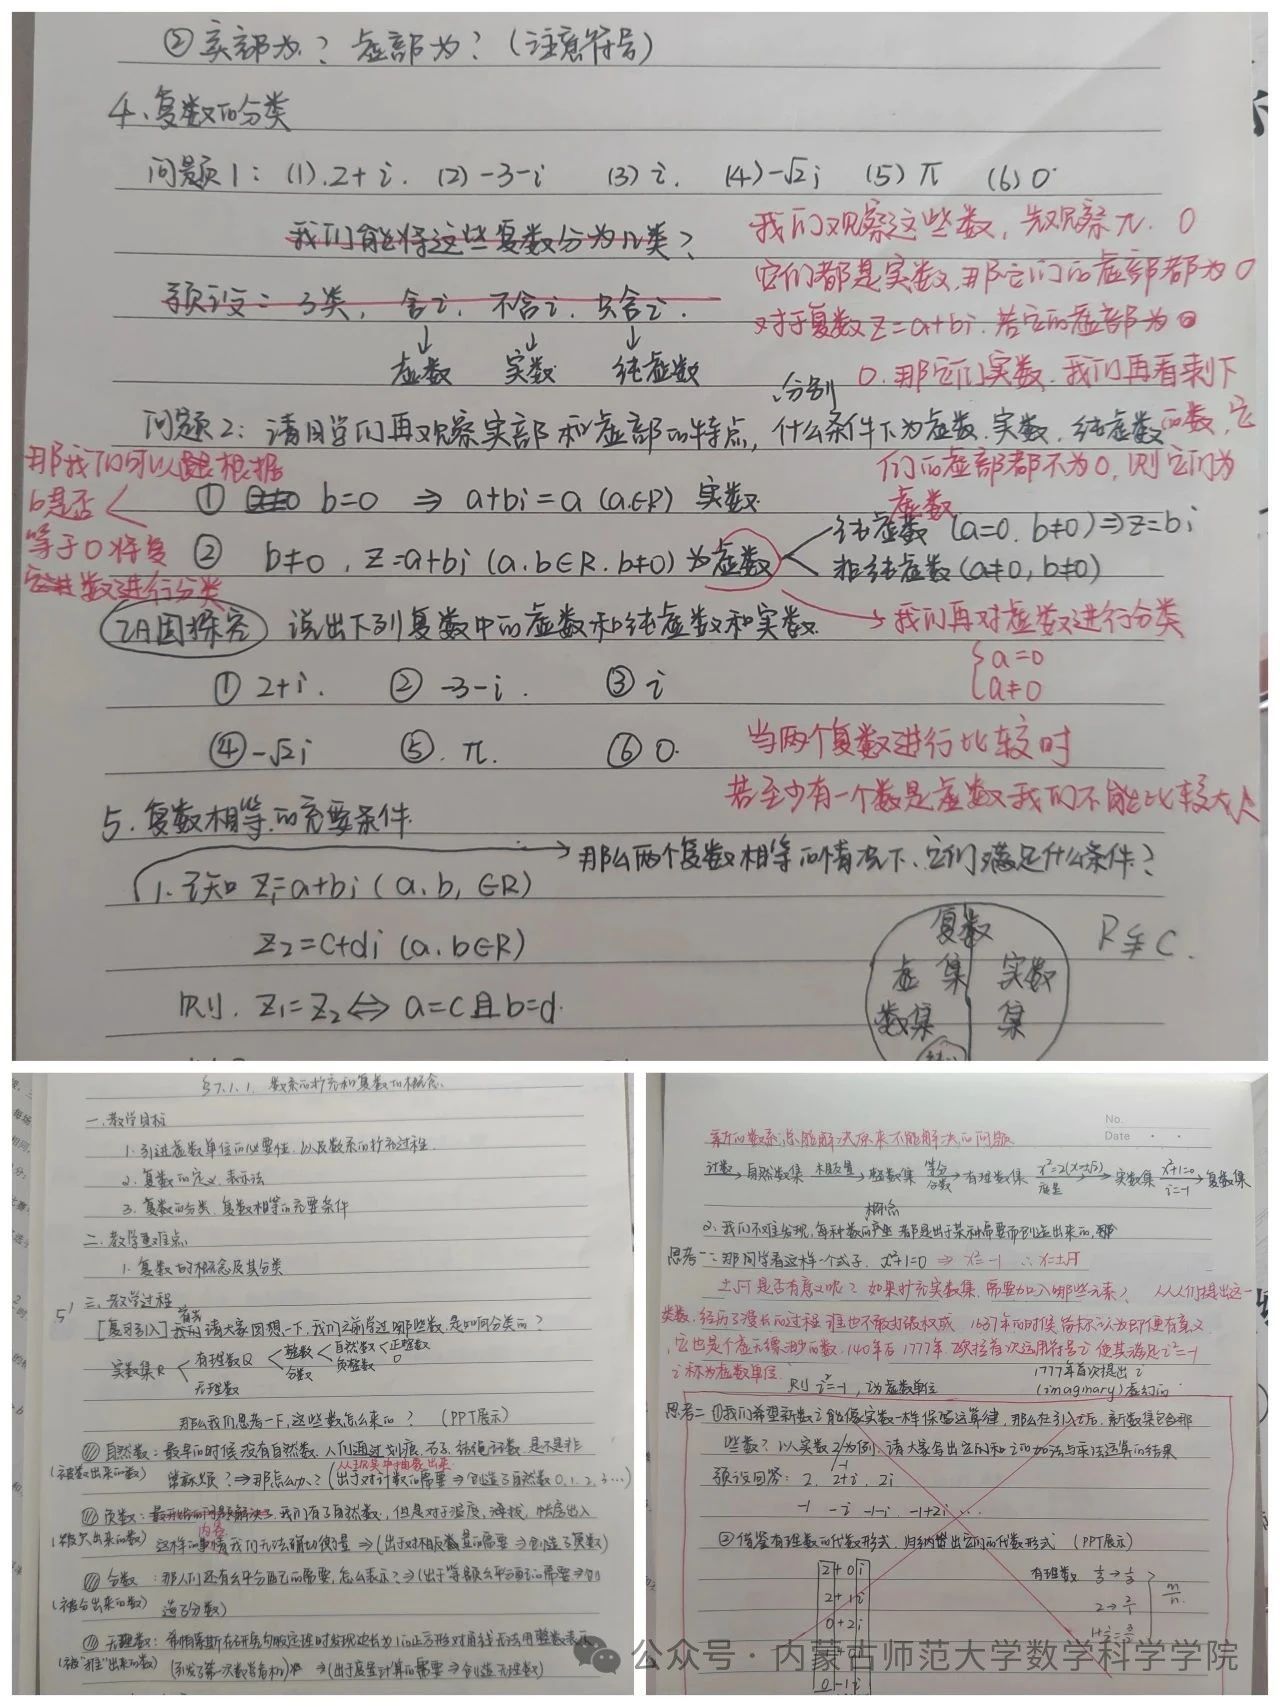 ② 实部为？虚部为？（注意符号）
4、复数的分类
问题1：(1).2+i. (2)-3-i (3)i. (4)-√2i (5)π (6)0.
我们能将这些复数分为几类？
预设：3类，含i，不含i，只含i.
↓ ↓ ↓
虚数 实数 纯虚数
我们观察这些数，先观察π.0
它们都是实数，那它们的虚部都为0
对于复数z=a+bi.若它的虚部为
0.那它们实数.我们再看剩下
的数，它
们的虚部都不为0，则它们为
虚数
分别
问题2：请同学们再观察实部和虚部的特点，什么条件下为虚数.实数.纯虚数
那我们可以根据
b是否
等于0将复
数进行分类
① b=0 ⇒ a+bi=a (a∈R) 实数
② b≠0，z=a+bi (a.b∈R.b≠0)为虚数
纯虚数 (a=0.b≠0)⇒z=bi
非纯虚数(a≠0,b≠0)
→我们再对虚数进行分类
a=0
a≠0
探究 说出下列复数中的虚数和纯虚数和实数.
① 2+i. ② -3-i. ③ i
④ -√2i ⑤.π. ⑥ 0.
当两个复数进行比较时
若至少有一个数是虚数我们不能比较大小
5.复数相等的充要条件.
→那么两个复数相等的情况下、它们满足什么条件？
1.已知 z₁=a+bi (a.b,∈R)
z₂=c+di (a.b∈R)
则.z₁=z₂⇔a=c且b=d.
复数
集
虚
数集
实数
集
R⫋C.
§7.1.1.数系的扩充和复数的概念.
一.教学目标
1.引进虚数单位的必要性.以及数系的扩充过程.
2.复数的定义.表示法
3.复数的分类.复数相等的充要条件
二.教学重难点
1.复数的概念及其分类
三.教学过程
5'
[复习引入] 请大家回想一下，我们之前学过哪些数，是如何分类的？
实数集R
有理数Q
无理数
整数
分数
自然数
负整数
正整数
0
那么我们思考一下，这些数怎么来的？（PPT展示）
自然数：最早的时候没有自然数.人们通过划痕、石子、结绳记数，是不是非
(被数出来的数)
常麻烦？⇒那怎么办？(出于对计数的需要⇒创造了自然数0.1.2.3…)
负数：我们有了自然数，但是对于温度，海拔，帐房出入
(被欠出来的数)
这样的内容我们无法确切衡量⇒(出于对相反数量的需要⇒创造了负数)
分数：那人们还有么平分配的需要，怎么表示？⇒(出于等额公平分配的需要⇒创
(被分出来的数)
造了分数)
无理数：希帕索斯在研究勾股定理时发现边长为1的正方形对角线无法用整数表示
(被"推"出来的数)
(引发了第一次数学危机) ⇒(出于度量计算的需要⇒创造无理数)
No.
Date
新的数系总能解决原来不能解决的问题
计数→自然数集 相反量→整数集 等分 分数→有理数集 x²=2(x=±√2) 度量→实数集 x²+1=0 i²=-1→复数集
概念
2.我们不难发现，每种数的产生都是出于某种需要而创造出来的，那
思考一：那同学看这样一个式子.x²+1=0 ⇒ x²=-1 ∴x=±√-1
±√-1是否有意义呢？如果扩充实数集.需要加入哪些元素？从人们提出这一
类数，经历了漫长的过程 谁也不敢打破权威 1637年的时候 笛卡尔认为即便有意义
它也是个虚无缥缈的数.140年后1777年.欧拉首次运用符号i使其满足i²=-1
i称为虚数单位.
则i²=-1，i为虚数单位
1777年首次提出i
(imaginary)虚幻的
思考二 ①我们希望新数i能像实数一样保留运算律，那么在引入i后，新数集包含那
些数？以实数2为例，请大家写出它们和i的加法与乘法运算的结果
-1
预设回答：2. 2+i. 2i
-1 -i -1-i. -1+2i…
②借鉴有理数的代数形式，归纳出它们的代数形式 (PPT展示)
2+0i
2+1i
0+2i
0-1i
有理数
m/n
公众号·内蒙古师范大学数学科学学院